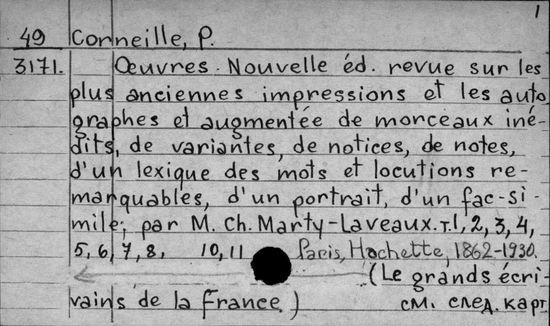 1
49 Corneille, P.
3171. Œuvres. Nouvelle éd. revue sur les
plus anciennes impressions et les auto
graphes et augmentée de morceaux iné-
dits, de variantes, de notices, de notes,
d'un lexique des mots et locutions re-
marquables, d'un portrait, d'un fac-si-
mile, par M. Ch. Marty-Laveaux. т.1, 2, 3, 4,
5, 6, 7, 8, 10, 11 Paris, Hachette, 1862-1930.
(Le grands écri-
vains de la France.) см. след. карт